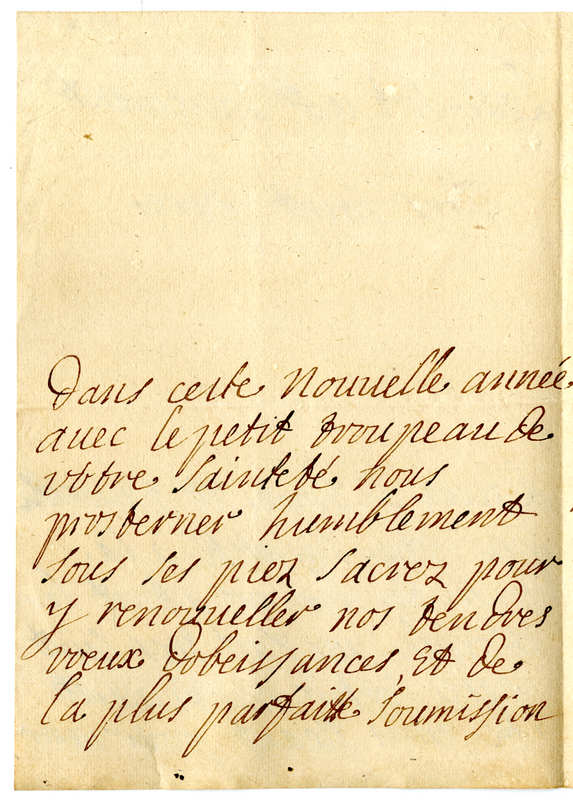 Dans cette Nouuelle année
auec le petit trouppeau de
vôtre Sainteté nous
prosterner humblement
sous ses piez sacrez pour
y renouueller nos tendres
vœux dobeissances et de
la plus parfaitte soumission